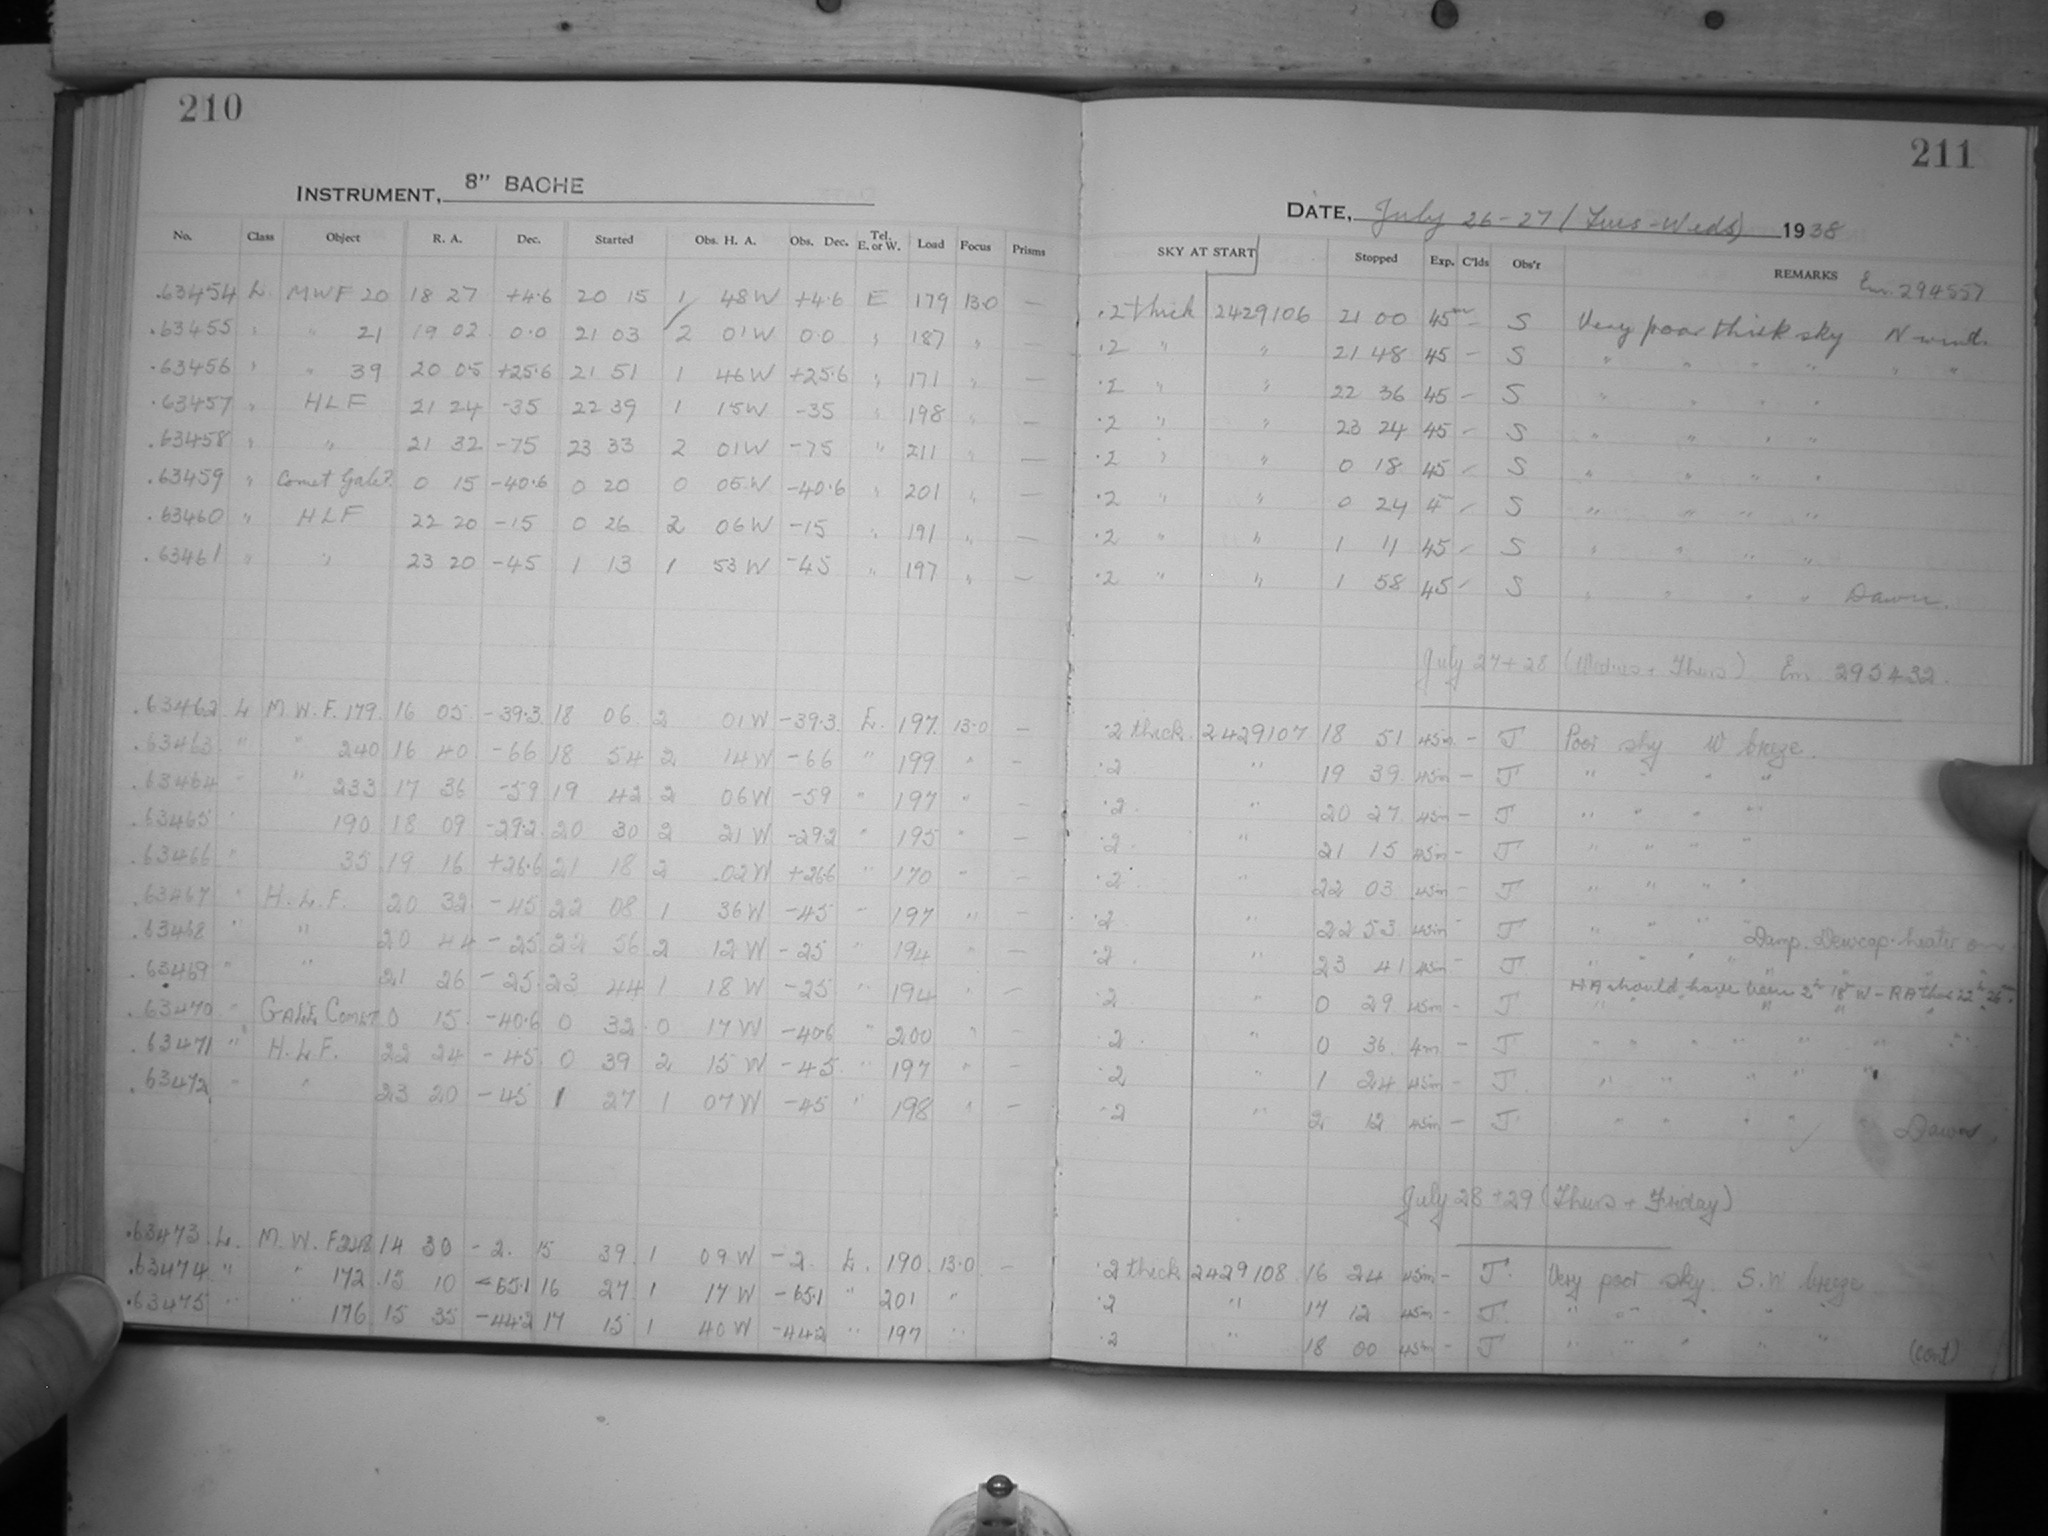 210
INSTRUMENT, 8" BACHE
No. Class Object R. A. Dec. Started Obs. H. A. Obs. Dec. Tel. E. or W. Load Focus Prisms
.63454 L MWF 20 18 27 +4.6 20 15 1 48W +4.6 E 179 13.0 —
.63455 " " 21 19 02 0.0 21 03 2 01W 0.0 " 187 " —
.63456 " " 39 20 05 +25.6 21 51 1 46W +25.6 " 171 " —
.63457 " HLF 21 24 -35 22 39 1 15W -35 " 198 " —
.63458 " " 21 32 -75 23 33 2 01W -75 " 211 " —
.63459 " Comet Gale? 0 15 -40.6 0 20 0 05W -40.6 " 201 " —
.63460 " HLF 22 20 -15 0 26 2 06W -15 " 191 " —
.63461 " " 23 20 -45 1 13 1 53W -45 " 197 " —
.63462 L M.W.F. 179 16 05 -39.3 18 06 2 01W -39.3 E. 197 13.0 —
.63463 " " 240 16 40 -66 18 54 2 14W -66 " 199 " —
.63464 " " 233 17 36 -59 19 42 2 06W -59 " 197 " —
.63465 " 190 18 09 -29.2 20 30 2 21W -29.2 " 195 " —
.63466 " 35 19 16 +26.6 21 18 2 02W +26.6 " 170 " —
.63467 " H.L.F. 20 32 -45 22 08 1 36W -45 " 197 " —
.63468 " " 20 44 -25 22 56 2 12W -25 " 194 " —
.63469 " " 21 26 -25 23 44 1 18W -25 " 194 " —
.63470 " GALE COMET 0 15 -40.6 0 32 0 17W -40.6 " 200 " —
.63471 " H.L.F. 22 24 -45 0 39 2 15W -45 " 197 " —
.63472 " " 23 20 -45 1 27 1 07W -45 " 198 " —
.63473 L. M.W.F 14 30 -2. 15 39 1 09W -2. E. 190 13.0 —
.63474 " " 172 15 10 -65.1 16 27 1 17W -65.1 " 201 "
.63475 " " 176 15 35 -44.2 17 15 1 40W -44.2 " 197 "
211
DATE, July 26-27 (Tues-Weds) 1938
SKY AT START Stopped Exp. C'lds Obs'r REMARKS Em. 294557
.2 thick 2429106 21 00 45m — S Very poor thick sky N wind.
.2 " " 21 48 45 — S " " " " " "
.2 " " 22 36 45 — S " " " "
.2 " " 23 24 45 — S " " " "
.2 " " 0 18 45 — S " " " "
.2 " " 0 24 4 — S " " " "
.2 " " 1 11 45 — S " " " "
.2 " " 1 58 45 — S " " " " Dawn.
July 27+28 (Wednes + Thurs) Em 295432.
.2 thick. 2429107 18 51 45m — J Poor sky W breeze.
.2 " 19 39 45m — J " " " "
.2 " 20 27 45m — J " " " "
.2 " 21 15 45m — J " " " "
.2 " 22 03 45m — J " " " "
.2 " 22 53 45m — J " " " Damp. Dewcap heater on
.2 " 23 41 45m — J " " " "
HA should have been 2h 18m W - RA thus 22h 26m.
.2 " 0 29 45m — J " " " " " "
.2 " 0 36 4m — J " " " " " "
.2 " 1 24 45m — J " " " " "
.2 " 2 12 45m — J " " " " " Dawn.
July 28+29 (Thurs + Friday)
.2 thick 2429108 16 24 45m — J Very poor sky. S.W breeze
.2 " 17 12 45m — J " " " " "
.2 " 18 00 45m — J " " " " "
(cont)